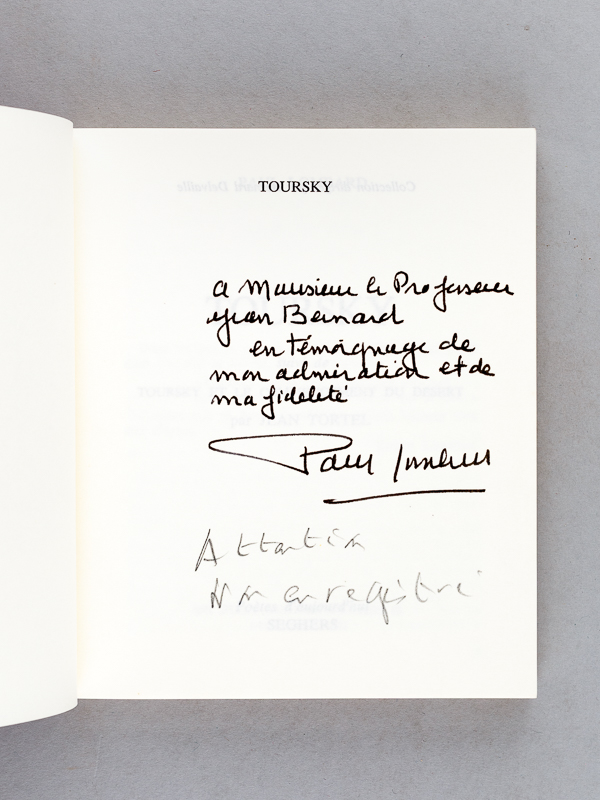 TOURSKY
a Monsieur le Professeur
Jean Bernard
en témoignage de
mon admiration et de
ma fidélité
Paul
Attention
Non enregistré